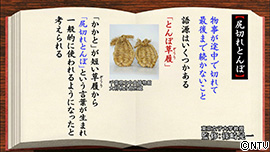 尻切れとんぼ
物事が途中で切れて
最後まで続かないこと
語源はいくつかある
「とんぼ草履」
「かかと」が短い草履から
「尻切れとんぼ」という言葉が生まれ
一般的に使われるようになったと
考えられる
©NTV